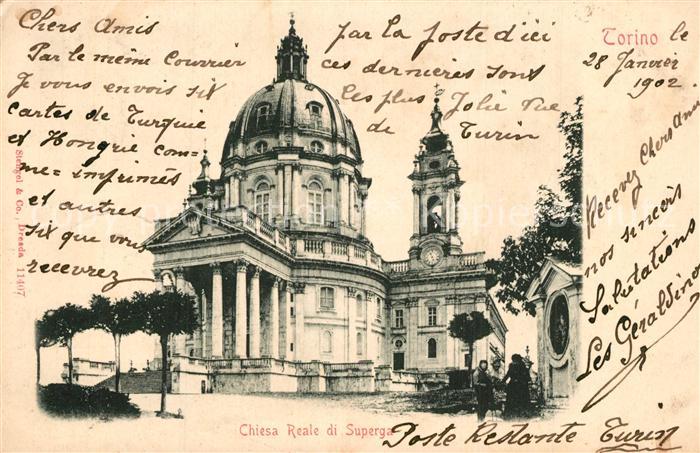 Chers Amis
Par le même Courrier
Je vous envois six
cartes de Turquie
et Hongrie com-
me = imprimés
et autres
six que vous
recevrez
par la poste d'ici
ces dernieres sont
les plus Jolie vue
de Turin
Torino le
28 Janvier
1902
Recevez Chers Ami
nos sincers
Salutations
Les Géraldinos
Stengel & Co., Dresda 11407
Chiesa Reale di Superga
Poste Restante Turin